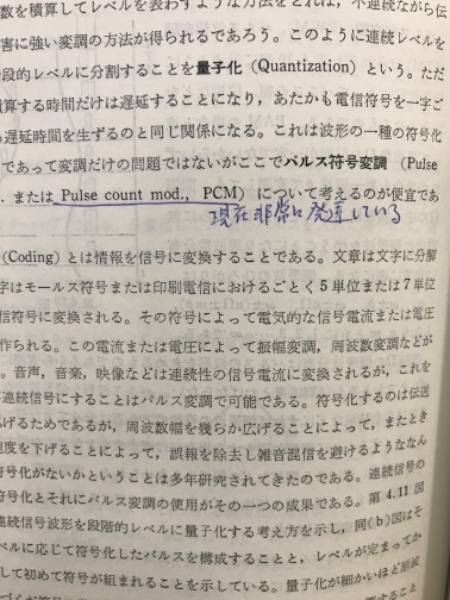 数を積算してレベルを表わすような方法をとれば，不連続ながら伝
害に強い変調の方法が得られるであろう。このように連続レベルを
段的レベルに分割することを量子化（Quantization）という。ただ
積算する時間だけは遅延することになり，あたかも電信符号を一字ご
遅延時間を生ずるのと同じ関係になる。これは波形の一種の符号化
であって変調だけの問題ではないがここでパルス符号変調 （Pulse
. または Pulse count mod., PCM） について考えるのが便宜であ
現在非常に発達している
（Coding）とは情報を信号に変換することである。文章は文字に分解
字はモールス符号または印刷電信におけるごとく5単位または7単位
信符号に変換される。その符号によって電気的な信号電流または電圧
作られる。この電流または電圧によって振幅変調，周波数変調などが
。音声，音楽，映像などは連続性の信号電流に変換されるが，これを
連続信号にすることはパルス変調で可能である。符号化するのは伝送
げるためであるが，周波数幅を幾らか広げることによって，またとき
速度を下げることによって，誤報を除去し雑音混信を避けるようななん
符号化がないかということは多年研究されてきたのである。連続信号の
符号化とそれにパルス変調の使用がその一つの成果である。第 4.11 図
連続信号波形を段階的レベルに量子化する考え方を示し，同(b)図はそ
ベルに応じて符号化したパルスを構成することと，レベルが定まってか
して初めて符号が組まれることを示している。量子化が細かいほど原波